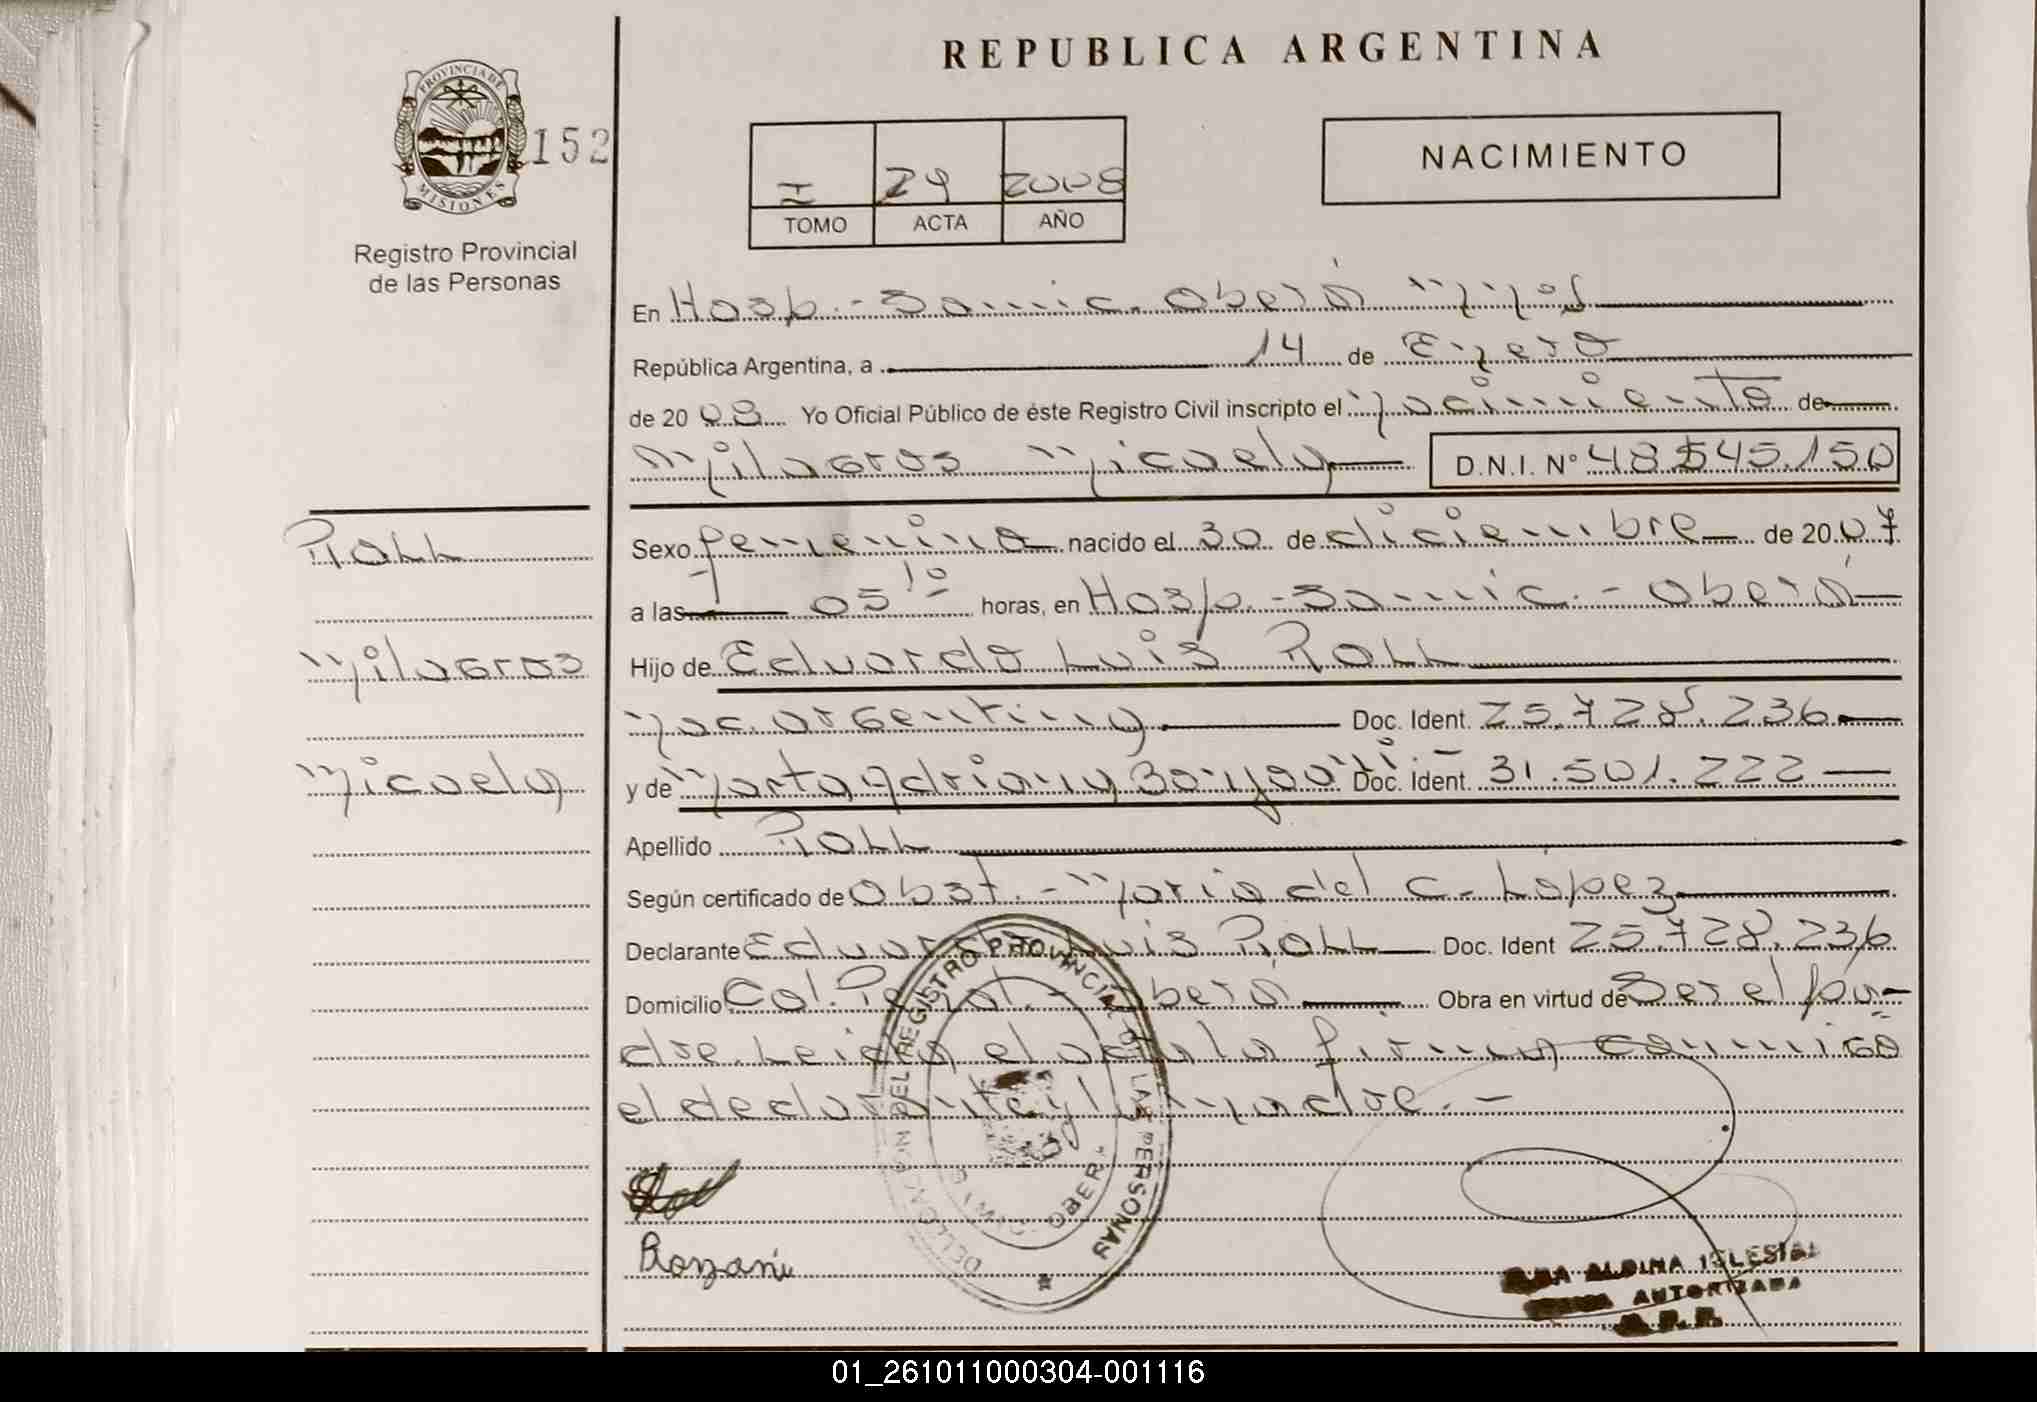 REPUBLICA ARGENTINA
PROVINCIA DE
MISIONES
152
Registro Provincial
de las Personas
I 29 2008
TOMO ACTA AÑO
NACIMIENTO
En Hosp.- Samic. Oberá Mnes
República Argentina, a 14 de Enero
de 2008 Yo Oficial Público de éste Registro Civil inscripto el Nacimiento de
Milagros Micaela D.N.I. Nº 48.545.150
Roll
Milagros
Micaela
Sexo femenino nacido el 30 de diciembre de 2007
a las 05 10 horas, en Hosp.- Samic.- Oberá
Hijo de Eduardo Luis Roll
Nac. argentina Doc. Ident. 25.728.236
y de Marta Adriana Doc. Ident. 31.501.222
Apellido Roll
Según certificado de Obst.- Maria del C. Lopez
Declarante Eduardo Luis Roll Doc. Ident 25.728.236
Domicilio Col. Oberá Obra en virtud de Ser el pa-
dre. Leida el acta la firma conmigo
el declarante y la madre.-
REGISTRO PROVINCIAL DE LAS PERSONAS
DELEGACION DEL
OBERA
ALDINA IGLESIAS
AUTORIZADA
R.P.P.
01_261011000304-001116